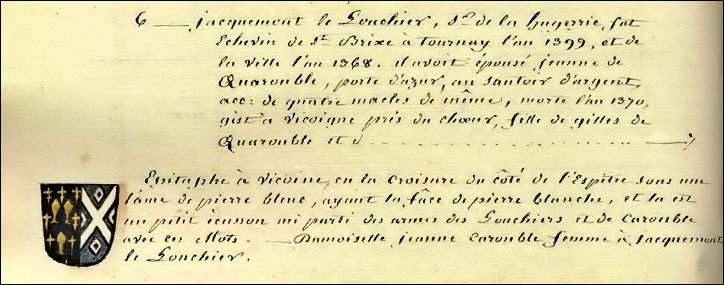 6 — jacquemont le Louchier, Sr. de la hugerrie, fut
Echevin de St. Brixe à tournay l'an 1399, et de
la ville l'an 1368. il avoit épousé jeanne de
Quarouble, porte d'azur, au sautoir d'argent,
acc: de quatre macles de même, morte l'an 1370,
gist à vicoigne près du chœur, fille de gilles de
Quarouble et d
Epitaphe à vicoine, en la croisure du côté de l'Espitre sous une
lâme de pierre bleue, ayant la fâce de pierre blanche, et la est
un petit écusson mi parti des armes des Louchiers et de Carouble
avec ces Mots. — Damoiselle jeanne Carouble femme à Jacquemont
le Louchier.